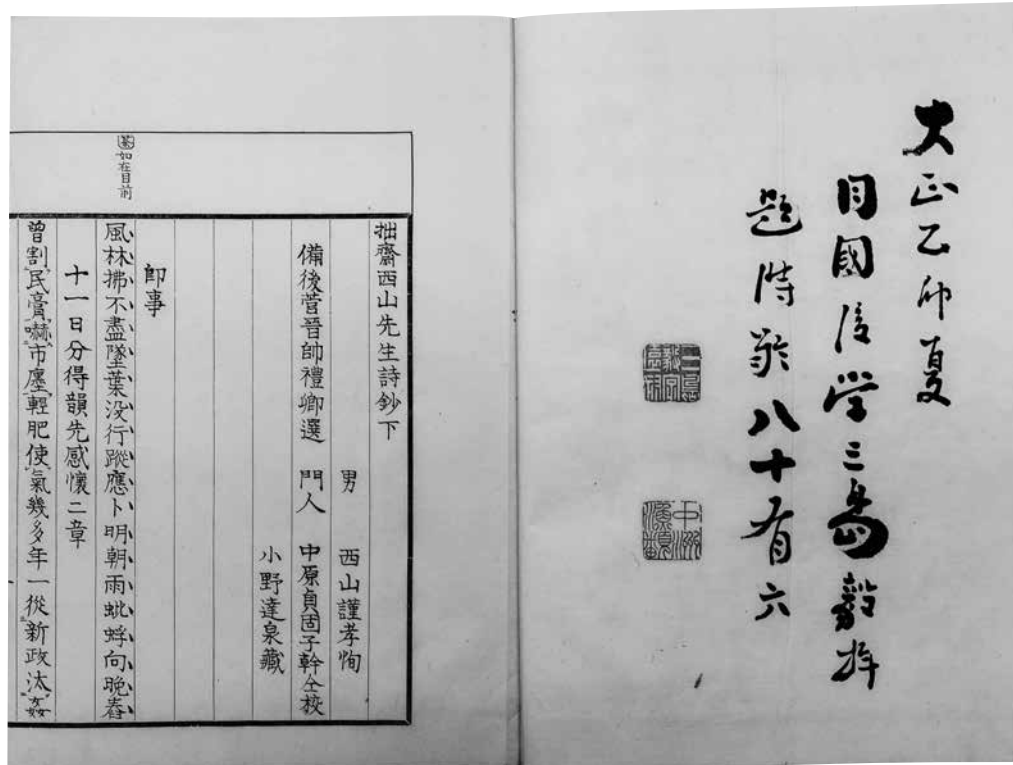 大正乙卯夏
同國後学三島毅拝
題時齡八十有六
拙齋西山先生詩鈔下
男 西山謹孝恂
備後菅晉帥禮卿選 門人 中原貞固子幹仝校
小野達泉藏
即事
茶如在目前
風林拂不盡墜葉没行蹤應卜明朝雨蚍蜉向晚舂
十一日分得韻先感懷二章
曾割民膏嚇市廛輕肥使氣幾多年一從新政汰姦